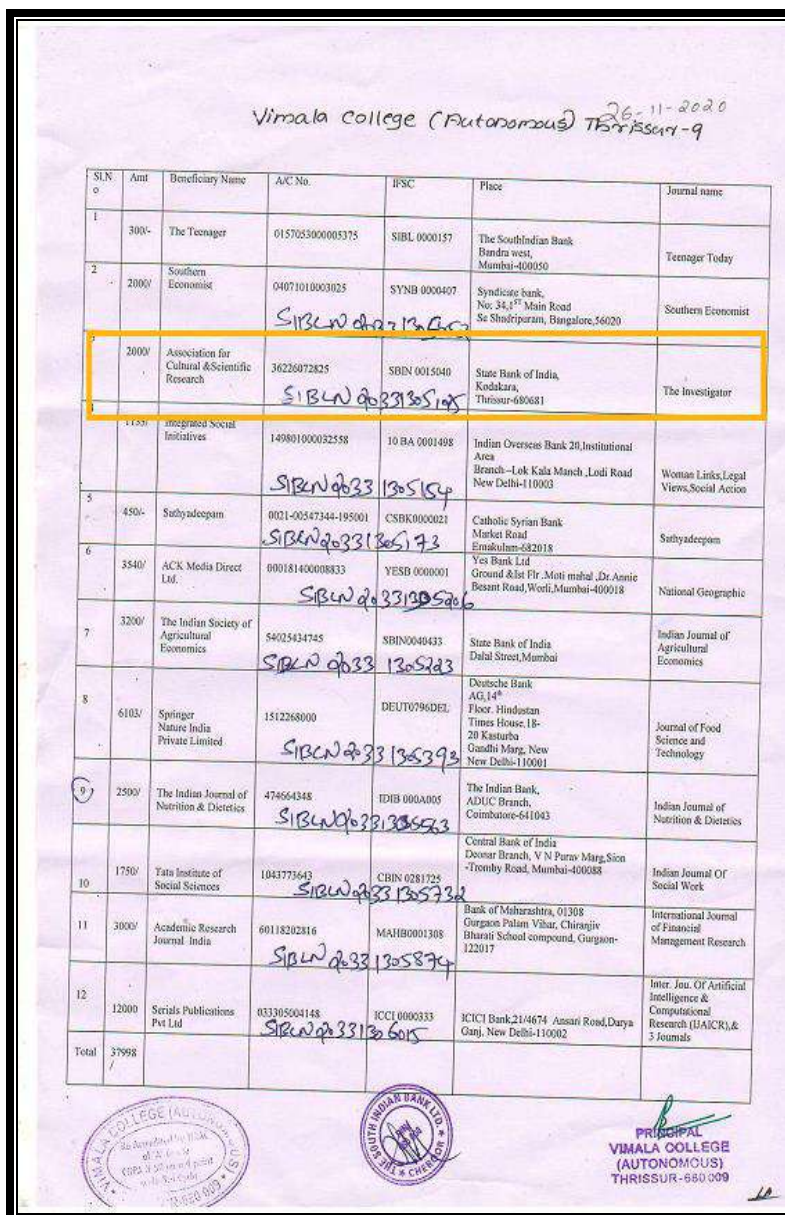 26-11-2020
Vimala College (Autonomous) Thrissur-9
Sl.N o Amt Beneficiary Name A/C No. IFSC Place Journal name
1
300/- The Teenager 0157053000005375 SIBL 0000157 The SouthIndian Bank
Bandra west,
Mumbai-400050
Teenager Today
2
2000/ Southern
Economist
04071010003025 SYNB 0000407 Syndicate bank,
No; 34,1ST Main Road
Se Shadripuram, Bangalore,56020
Southern Economist
2000/ Association for
Cultural &Scientific
Research
36226072825 SBIN 0015040 State Bank of India,
Kodakara,
Thrissur-680681
The Investigator
SIBLN20331305105
Integrated Social
Initiatives
149801000032558 10 BA 0001498 Indian Overseas Bank 20,Institutional
Area
Branch:-Lok Kala Manch ,Lodi Road
New Delhi-110003
Woman Links,Legal
Views,Social Action
SIBLN20331305154
5
450/- Sathyadeepam 0021-00547344-195001 CSBK0000021 Catholic Syrian Bank
Market Road
Ernakulam-682018
Sathyadeepam
SIBLN20331305173
6
3540/ ACK Media Direct
Ltd.
000181400008833 YESB 0000001 Yes Bank Ltd
Ground &Ist Flr .Moti mahal ,Dr.Annie
Besant Road,Worli,Mumbai-400018
National Geographic
SIBLN20331305206
7
3200/ The Indian Society of
Agricultural
Economics
54025434745 SBIN0040433 State Bank of India
Dalal Street,Mumbai
Indian Journal of
Agricultural
Economics
SIBLN20331305223
8
6103/ Springer
Nature India
Private Limited
1512268000 DEUT0796DEL Deutsche Bank
AG,14th
Floor. Hindustan
Times House,18-
20 Kasturba
Gandhi Marg, New
New Delhi-110001
Journal of Food
Science and
Technology
SIBLN20331305393
9
2500/ The Indian Journal of
Nutrition & Dietetics
474664348 IDIB 000A005 The Indian Bank,
ADUC Branch,
Coimbatore-641043
Indian Journal of
Nutrition & Dietetics
SIBLN20331305563
10
1750/ Tata Institute of
Social Sciences
1043773643 CBIN 0281725 Central Bank of India
Deonar Branch, V N Purav Marg,Sion
-Tromby Road, Mumbai-400088
Indian Journal Of
Social Work
SIBLN20331305732
11
3000/ Academic Research
Journal India
60118202816 MAHB0001308 Bank of Maharashtra, 01308
Gurgaon Palam Vihar, Chiranjiv
Bharati School compound, Gurgaon-
122017
International Journal
of Financial
Management Research
SIBLN20331305874
12
12000 Serials Publications
Pvt Ltd
033305004148 ICCI 0000333 ICICI Bank,21/4674 Ansari Road,Darya
Ganj, New Delhi-110002
Inter. Jou. Of Artificial
Intelligence &
Computational
Research (IJAICR),&
3 Journals
SIBLN20331306015
Total 37998
/
VIMALA COLLEGE (AUTONOMOUS)
THE SOUTH INDIAN BANK LTD.
CHEROOR
PRINCIPAL
VIMALA COLLEGE
(AUTONOMOUS)
THRISSUR-680 009